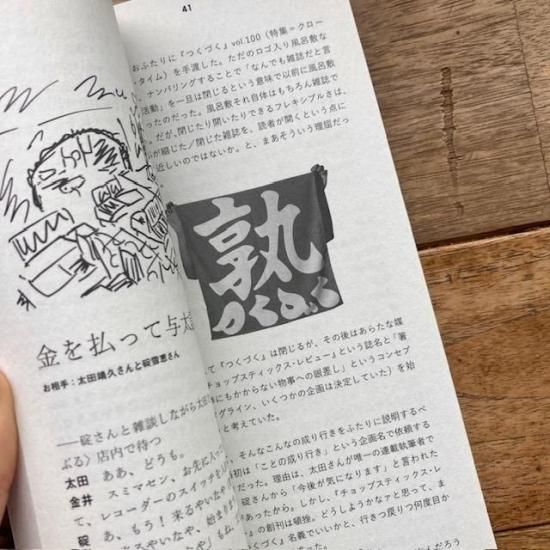 41
おふたりに『つくづく』vol.100（特集＝クロー
タイム）を手渡した。ただのロゴ入り風呂敷な
、ナンバリングすることで「なんでも雑誌だと言
活動」を一旦は閉じるという意味で以前に風呂敷
ったのだった。風呂敷それ自体はもちろん雑誌で
。だが、閉じたり開いたりできるフレキシブルさは、
が綴じた／閉じた雑誌を、読者が開くという点に
近しいのではないか。と、まあそういう理屈だっ
孰
つくづく
金を払って与太
お相手：太田靖久さんと碇雪恵さん
──碇さんと雑談しながら太田
ぶる〉店内で待つ
太田　ああ、どうも。
金井　スミマセン、お先に入っ
て、レコーダーのスイッチを
あ、もう！　来るやいなや、
やいなや、始まり
て『つくづく』は閉じるが、その後はあらたな媒
チョップスティックス・レビュー』という誌名と「箸
にもかからない物事への眼差し」というコンセプ
グライン、いくつかの企画は決定していた）を始
と考えていた。
、そんなこんなの成り行きをふたりに説明するべ
初は「ことの成り行き」という企画名で依頼する
だった。理由は、太田さんが唯一の連載執筆者で
碇さんから「今後が気になります」と言われた
あったから。しかし、『チョップスティックス・レ
』の創刊は頓挫。どうしようかなァと思って、ま
づく』名義でいいかと、行きつ戻りつ何度目か